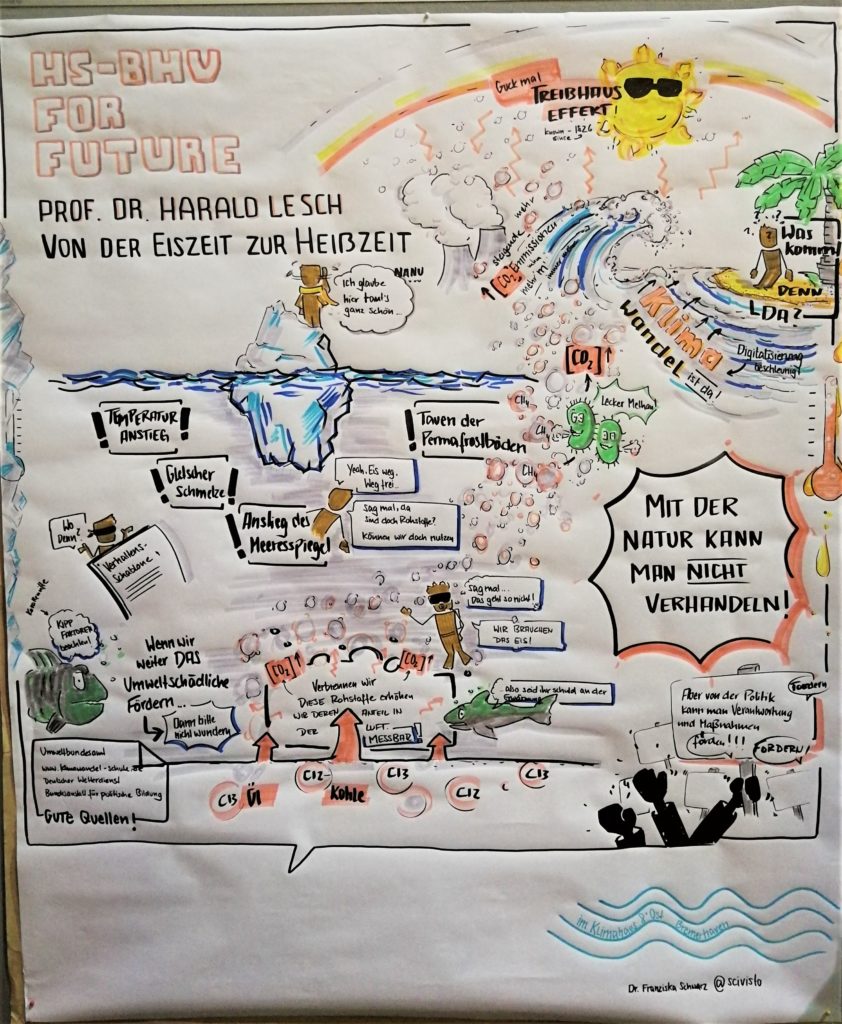 HS-BHV
FOR
FUTURE
PROF. DR. HARALD LESCH
VON DER EISZEIT ZUR HEIßZEIT
Guck mal
TREIBHAUS
EFFEKT!
known
since - 1826
steigende mehr
CO2 Emmissionen
mehr
NANU
....
Ich glaube
hier taut's
ganz schön...
?..?
1.?
Was
kommt
DENN
LDA?
Klima
wandel
ist da!
Digitalisierung
beschleunigt
CO2
Lecker Methan!
CH4
CH4
CH4
TEMPERATUR
ANSTIEG
Gletscher
Schmelze
Anstieg des
Meeresspiegel
Tauen der
Permafrostböden
Yeah. Eis weg.
Weg frei...
Sag mal, da
sind doch Rohstoffe?
Können wir doch nutzen
Wo
Denn?
Verhaltens-
Schablone!
MIT DER
NATUR KANN
MAN NICHT
VERHANDELN!
sag mal...
Das geht so nicht!
WIR BRAUCHEN
DAS EIS!
KIPP
FAKTOREN
beachten!
Wenn wir
weiter DAS
Umweltschädliche
Fördern...
Dann bitte
nicht wundern
CO2
CO2
Verbrennen wir
DIESE Rohstoffe erhöhen
WIR DEREN ANTEIL IN
DER LUFT
MESSBAR!
Also seid ihr schuld an der
Erwärmung
Aber von der Politik
kann man Verantwortung
und Maßnahmen
fördern!!!
Fordern
FORDERN!
Umweltbundesamt
www.klimawandel-schule.de
Deutscher Wetterdienst
Bundesanstalt für politische Bildung
GUTE Quellen!
C13
Öl
C12
Kohle
C13
C12
C13
im Klimahaus 8° Ost Bremerhaven
Dr. Franziska Schwarz @scivisto